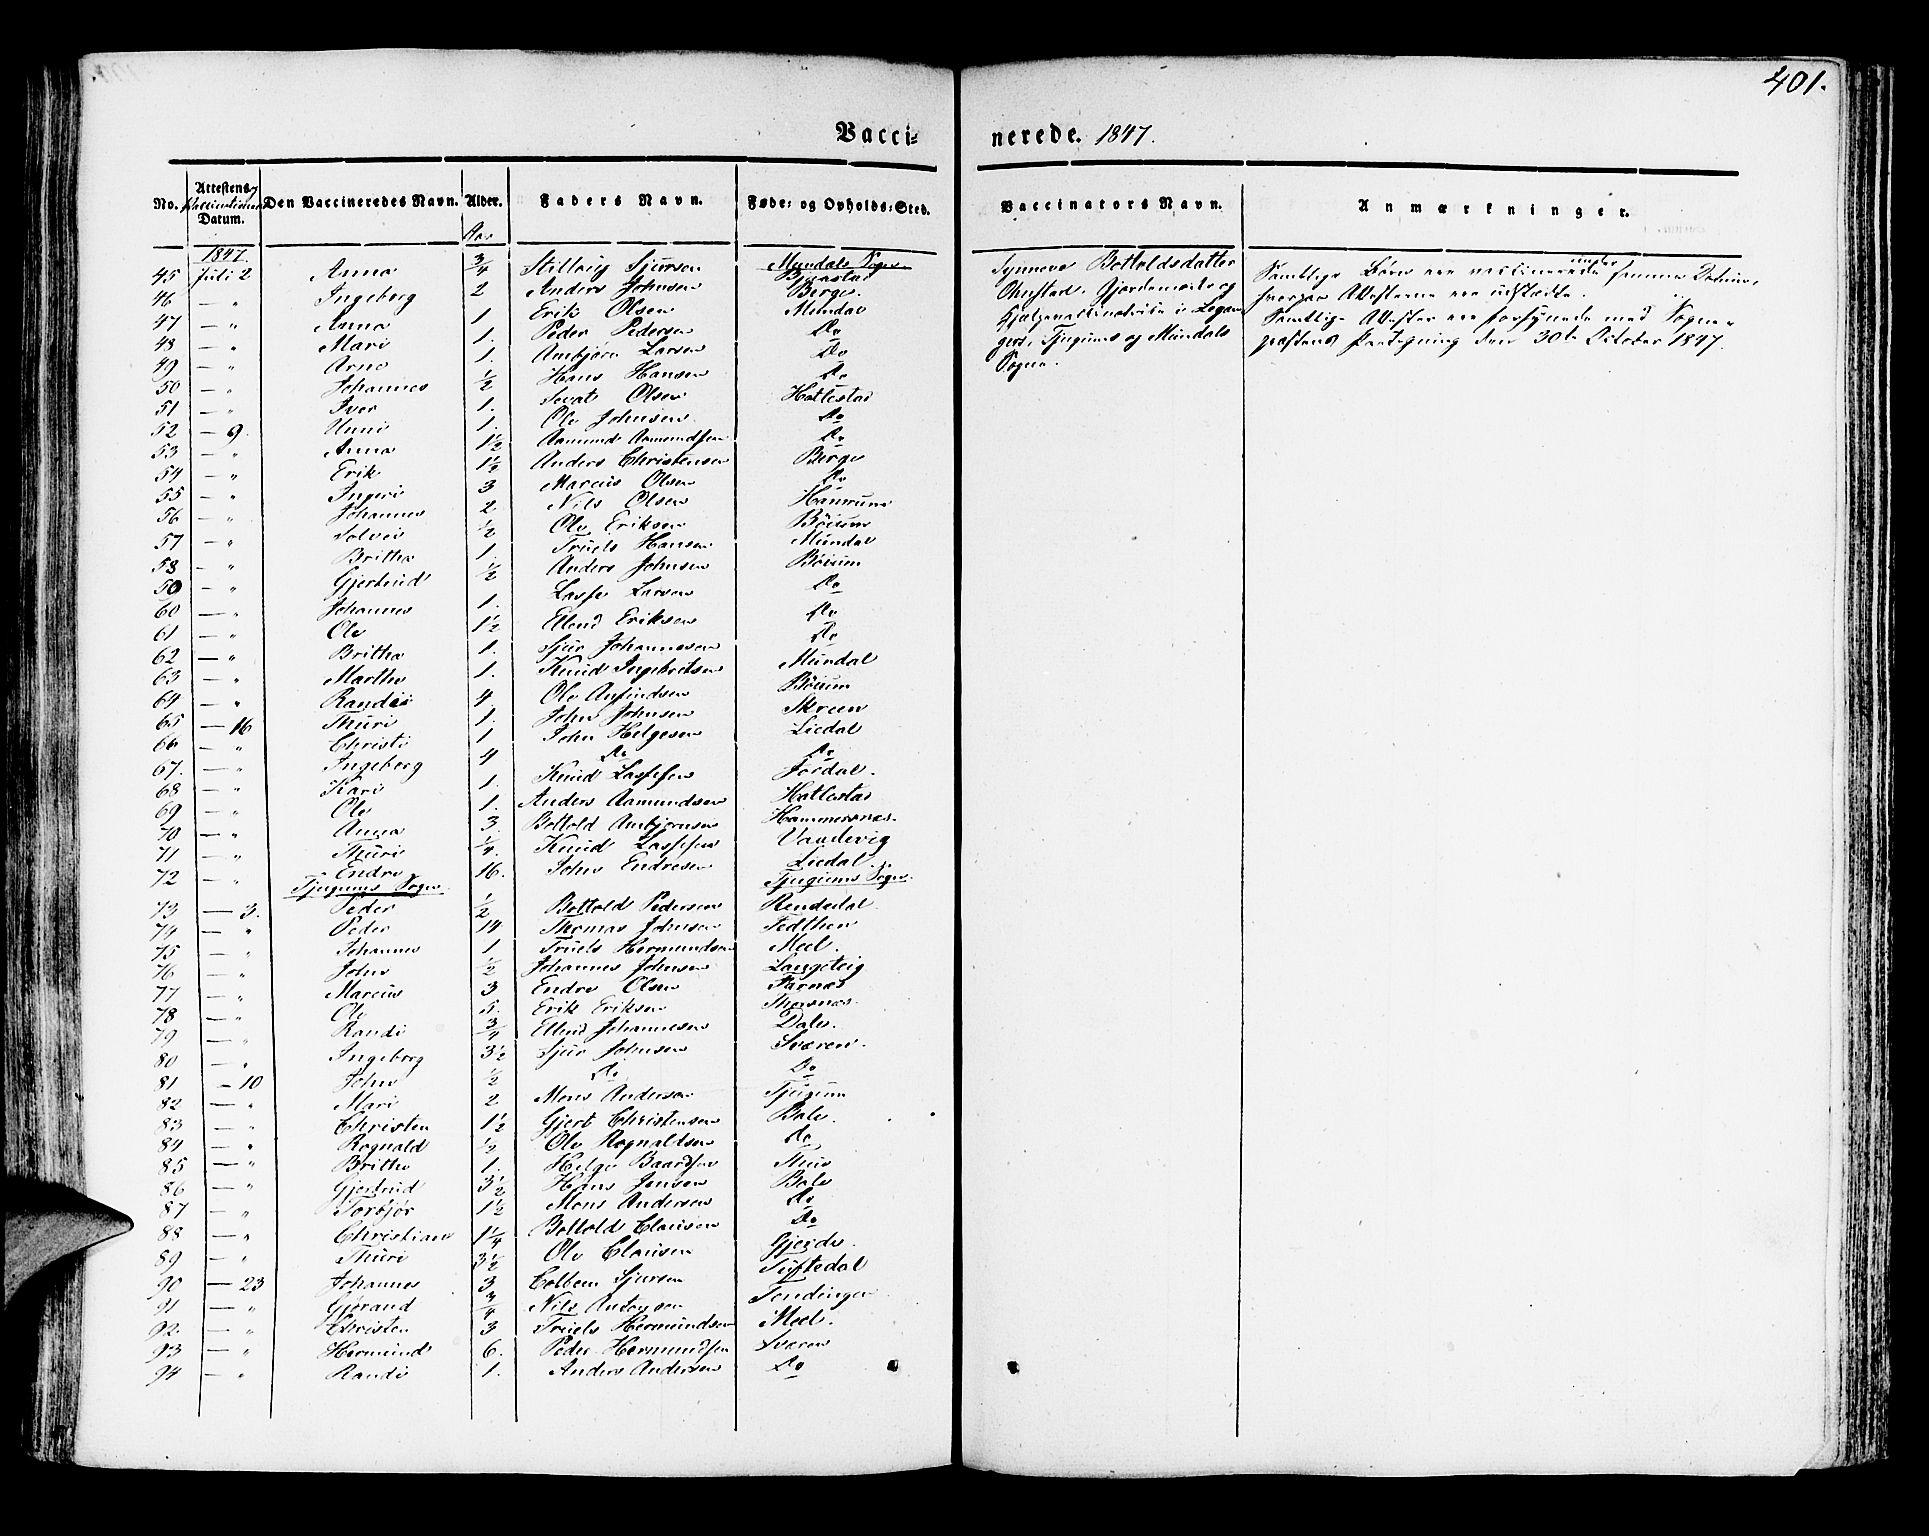 401.
Vacci-
nerede. 1847.
No. Attestens Vaccinations Datum. Den Vaccineredes Navn. Alder. Faders Navn. Føde- og Opholds-Sted. Vaccinators Navn. Anmærkninger.
Aar
1847. Mundals Sogn
45 Juli 2 Anna 3/4 Sjursen
46 — " Ingeborg 2 Anders Johnsen Berge
47 — " Anna 1. Erik Olsen Mundal
48 — " Mari 1. Peder Pedersen Do
49 — " Arne 1. Ambjörn Larsen Do
50 — " Johannes 1/2 Hans Hansen Do
51 — " Iver 1. Sevat Olsen Hatlestad
52 — 9. Unni 1. Ole Johnsen Do
53 — " Anna 1 1/2 Aamund Aamundsen Do
54 — " Erik 1 1/2 Anders Christensen Berge
55 — " Ingeri 3 Marcus Olsen Do
56 — " Johannes 2 Nils Olsen
57 — " Solvei 1/2 Ole Eriksen Böium
58 — " Britha 1. Truels Hansen Mundal
59 — " Gjertrud 1/2 Anders Johnsen Böium
60 — " Johannes 1. Lasse Larsen Do
61 — " Ole 1 1/2 Ellend Eriksen Do
62 — " Britha 1. Sjur Johannesen Do
63 — " Martha 1. Knud Ingebritsen Mundal
64 — " Randi 4 Ole Anfindsen Böium
65 — 16 Thuri 1. John Johnsen Skreen
66 — " Christi 1 John Helgesen Liedal
67. — " Ingeborg 4 Do Do
68 — " Kari 1. Knud Lassesen Jordal.
69 — " Ole 1. Anders Aamundsen Hatlestad
70 — " Anna 3. Bottold Ambjörnsen Hammersnæs.
71 — " Thuri 1/4. Knud Lassesen Vandevig
72 — " Endre 16. John Endresen Liedal.
Tjugums Sogn. Tjugums Sogn.
73 — 3. Peder 1/2 Bottold Pedersen Rendedal
74 — " Peder 14 Thomas Johnsen Fedthen
75 — " Johannes 1 Truels Hermundsen Meel.
76 — " John 1/2 Johannes Johnsen Langeteig
77 — " Marcus 3 Endre Olsen Farnæs
78 — " Ole 5. Erik Eriksen Thorsnæs.
79 — " Randi 3/4 Ellend Johannesen Dale.
80 — " Ingeborg 3 1/2 Sjur Johnsen Sværen.
81 — 10 John 1/2 Do Do
82 — " Mari 2 Mons Andersen Tjugum
83 — " Christen 1 1/2 Gjert Christensen Bale.
84 — " Rognald 1/2 Ole Rognaldsen Do
85 — " Britha 1. Helge Baardsen
86 — " Gjertrud 3 1/2 Hans Jensen Bale
87 — " Torbjör 1 1/2 Mons Andersen Do
88 — " Christian 1 1/4 Bottold Clausen Do
89 — " Thuri 3 1/2 Ole Clausen Gjerde.
90 — 23 Johannes 3 Colben Sjursen Tuftedal
91 — " Gjörand 3/4 Nils Antonsen
92. — " Christen 3 Truels Hermundsen Meel.
93 — " Hermund 6. Peder Hermundsen Sværen
94 — " Randi 1. Anders Andersen Do
Synneve Bottoldsdatter
Ohnstad, Gjordemoder og
Hjælpevaccinatrice i Legan-
gers, Tjugums og Mundals
Sogne.
Samtlige Børn ere vaccinerede under samme Datum,
hvorpaa Attesterne ere udstædte.
Samtlige Attester ere forsynede med Sogne-
præstens Paategning den 30te October 1847.